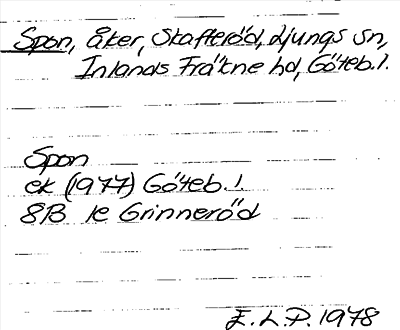 Spon, åker, Skafteröd, Ljungs sn,
Inlands Fräkne hd, Göteb. l.
Spon
ek (1977) Göteb. l.
8B 1e Grinneröd
E. L. P. 1978